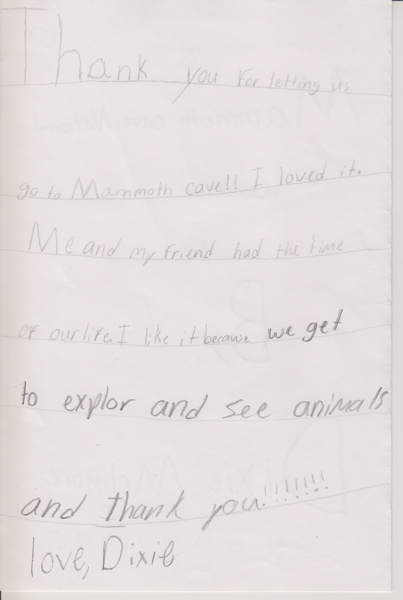 Thank you for letting us
go to Mammoth cave!! I loved it.
Me and my friend had the time
of our life. I like it because we get
to explor and see animals
and thank you!!!!!!!
love, Dixie